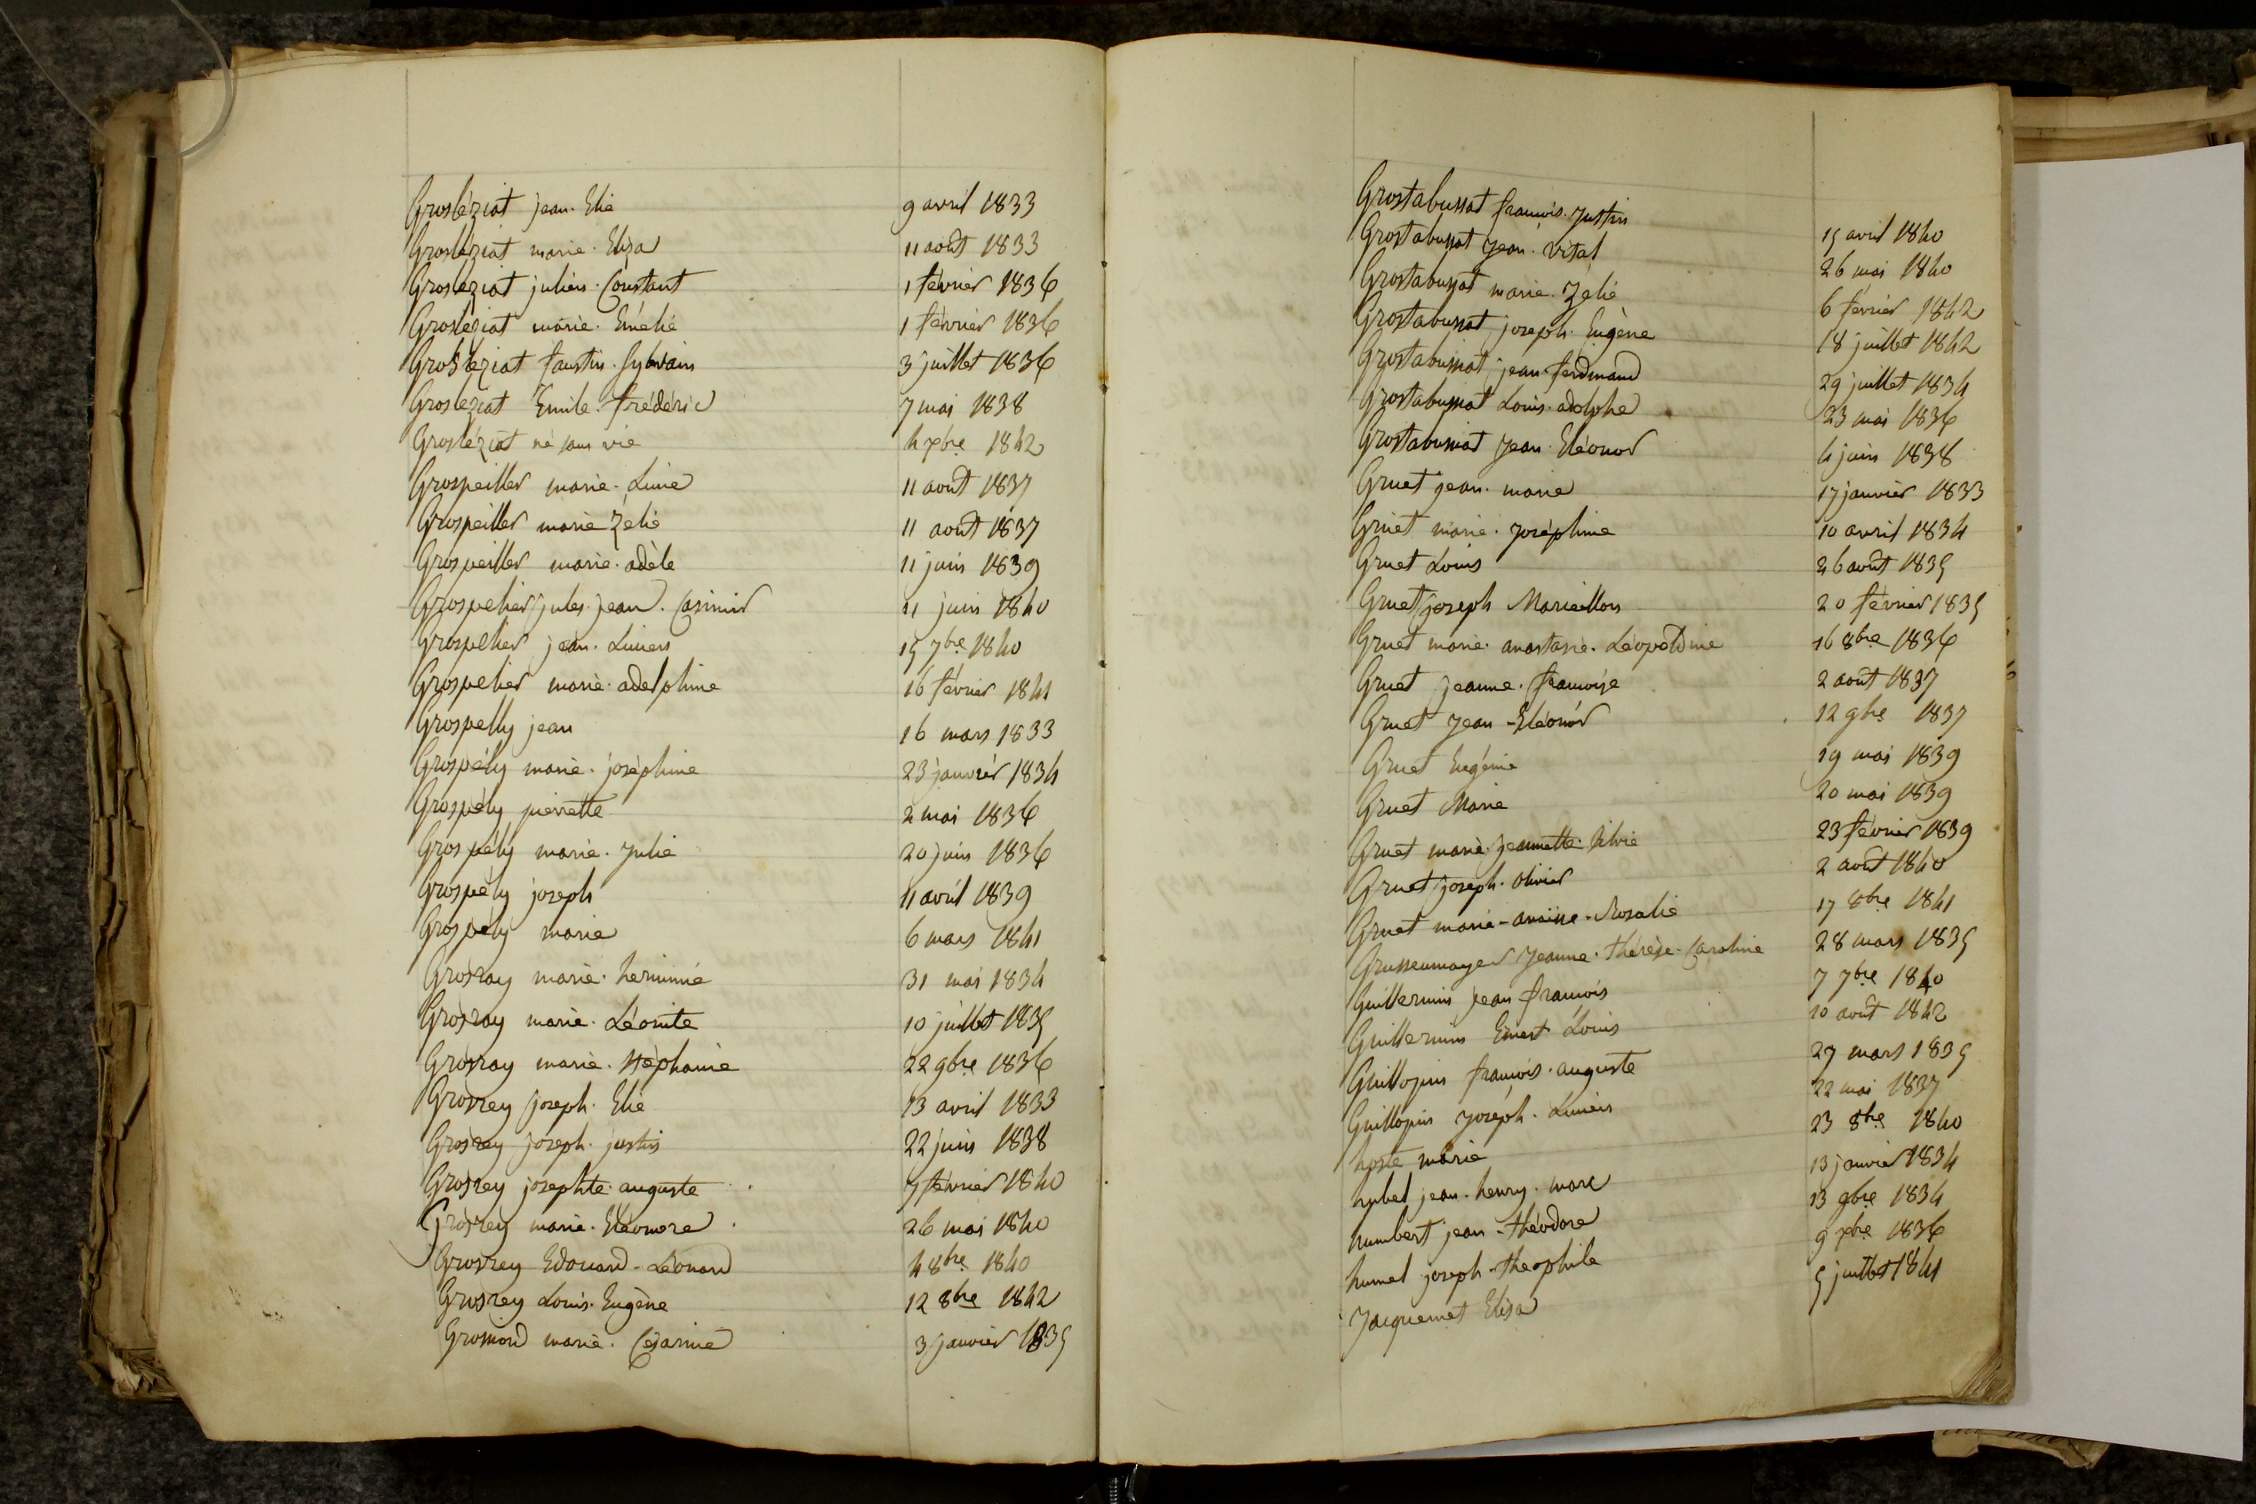 Grosléziat jean-Elie 9 avril 1833
Grosléziat marie-Eliza 11 août 1833
Grosléziat julien-Constant 1 février 1836
Grosléziat marie-Emélie 1 février 1836
Groslèziat faustin-Sylvain 3 juillet 1836
Groslèziat Emile-frédéric 7 mai 1838
Groslèziat né sans vie 4 xbre 1842
Grospeiller marie-Lucie 11 août 1837
Grospeiller marie Zélie 11 août 1837
Grospeiller marie-adèle 11 juin 1839
Grospelier jules-jean-Casimir 11 juin 1840
Grospelier jean-Lucien 15 7bre 1840
Grospelier marie-adelphine 16 février 1841
Grospelly jean 16 mars 1833
Grospély marie-joséphine 23 janvier 1834
Grospély pierrette 2 mai 1836
Grospély marie-Julie 20 juin 1836
Grospély joseph 11 avril 1839
Grospély marie 6 mars 1841
Grosray marie-herminie 31 mai 1834
Grosray marie-Léonite 10 juillet 1835
Grosray marie-Stéphanie 22 9bre 1836
Grosrey joseph-Elie 13 avril 1833
Grosrey joseph-justin 22 juin 1838
Grosrey josephte-auguste 7 février 1840
Grosrey marie-Eléonore 26 mai 1840
Grosrey Edouard-Léonard 4 8bre 1840
Grosrey Louis-Eugène 12 8bre 1842
Gromond marie-Césarine 3 janvier 1835
Grostabussat françois-Justin 15 avril 1840
Grostabussat Jean-vital 26 mai 1840
Grostabussat marie-Zélie 6 février 1842
Grostabussat joseph-Eugène 18 juillet 1842
Grostabussiat jean-ferdinand 29 juillet 1834
Grostabussiat Louis-adolphe 23 mai 1836
Grostabussiat Jean-Eléonor 4 juin 1838
Gruet jean-marie 17 janvier 1833
Gruet marie-Joséphine 10 avril 1834
Gruet Louis 26 août 1835
Gruet joseph Marcellon 20 février 1835
Gruet marie-anastasie-Léopoldine 16 8bre 1836
Gruet jeanne-françoise 2 août 1837
Gruet Jean-Eléonor 12 9bre 1837
Gruet Eugénie 19 mai 1839
Gruet Marie 20 mai 1839
Gruet marie-jeannette-Silvie 23 février 1839
Gruet joseph-olivier 2 août 1840
Gruet marie-anaïse-Rosalie 17 8bre 1841
Grussenmayer Jeanne-Thérèse-Caroline 28 mars 1835
Guillermin Jean françois 7 7bre 1840
Guillermin Ernest Louis 10 août 1842
Guillopin françois-auguste 27 mars 1835
Guillopin Joseph-Lucien 22 mai 1837
hoste marie 23 8bre 1840
hubel jean-henry-marc 13 janvier 1834
humbert jean-Théodore 13 9bre 1834
humel joseph-Théophile 9 xbre 1836
Jacquemet Elisa 5 juillet 1841